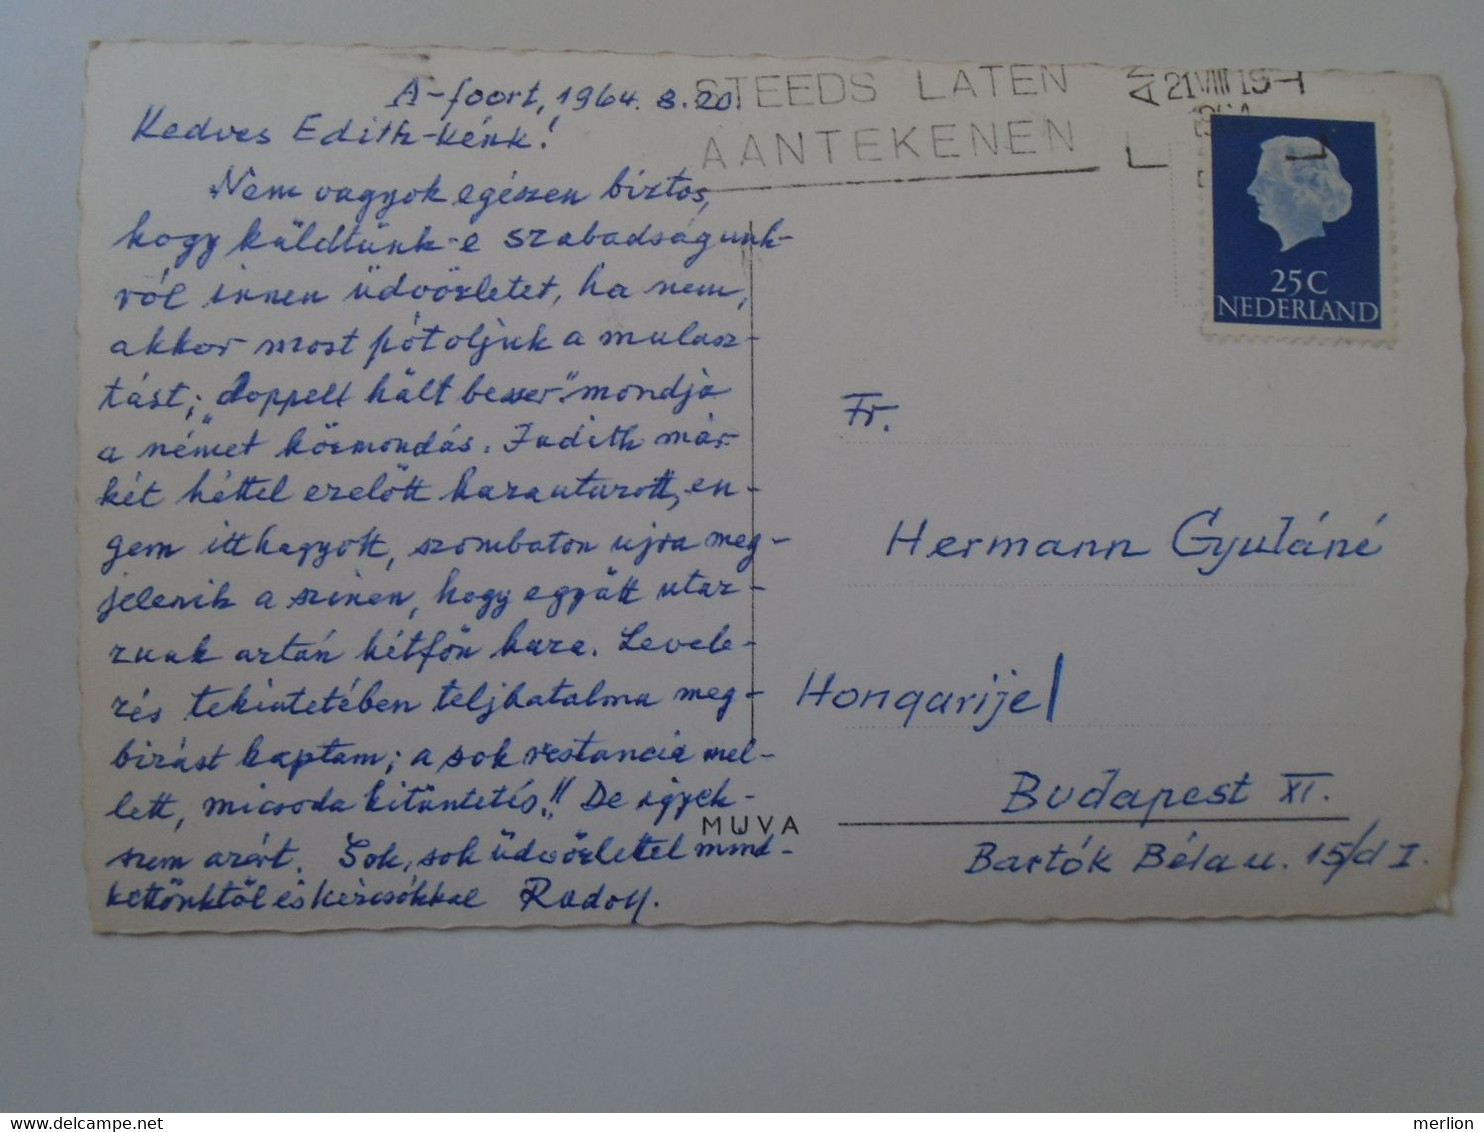 A-foort, 1964. 8. 20.
Kedves Edith-kénk!
Nem vagyok egészen biztos,
hogy küldtünk-e szabadságunk-
ról innen üdvözletet, ha nem,
akkor most pótoljuk a mulasz-
tást; „doppelt hält besser" mondja
a német közmondás. Judith már
két héttel ezelőtt hazautazott, en-
gem itthagyott, szombaton ujra meg-
jelenik a szinen, hogy együtt utaz-
zunk aztán hétfőn haza. Levele-
zés tekintetében teljhatalmu meg-
bizást kaptam; a sok restancia mel-
lett, micsoda kitüntetés!! De igyek-
szem azért. Sok, sok üdvözlettel mind-
kettőnktől és kézcsókkal Rudolf.
STEEDS LATEN
AANTEKENEN
21 VIII 19
25 C
NEDERLAND
MUVA
Fr.
Hermann Gyuláné
Hongarije
Budapest XI.
Bartók Béla u. 15/d I.
merlion